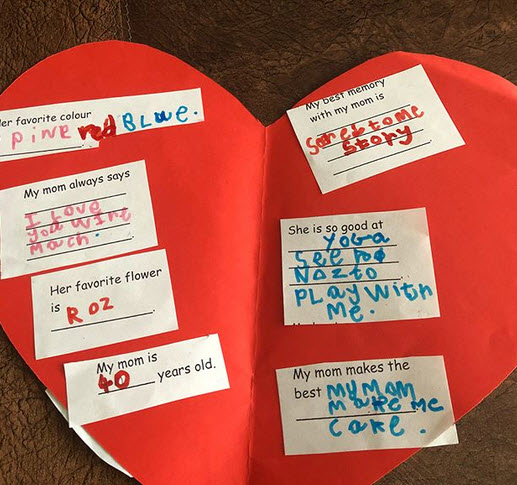 Her favorite colour
PiNK red BLue.
My mom always says
I Love
you
March.
Her favorite flower
is ROZ
My mom is
40 years old.
My best memory
with my mom is
Story
She is so good at
YOGA
See
NOZtO
PLAY With
Me.
My mom makes the
best MY MOM
MaKe Me
Cake.